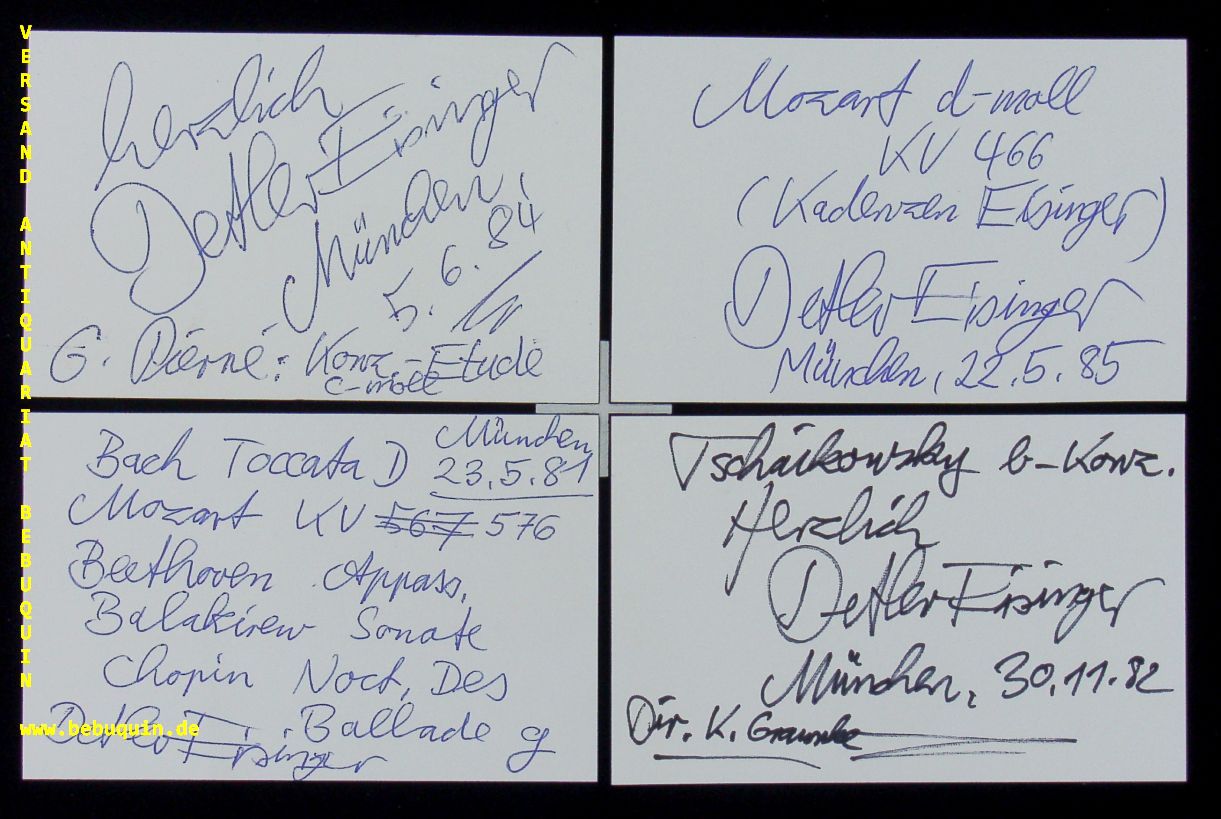 VERSAND ANTIQUARIAT BEBUQUIN
herzlich
Detlev Eisinger
München,
5.6.84
G. Pierné: Konz.-Etude
c-moll
Mozart d-moll
KV 466
(Kadenzen Eisinger)
Detlev Eisinger
München, 22.5.85
München
Bach Toccata D 23.5.81
Mozart KV 567 576
Beethoven Appass.
Balakirew Sonate
Chopin Noct. Des
Ballade g
Detlev Eisinger
www.bebuquin.de
Tschaikowsky b-Konz.
Herzlich
Detlev Eisinger
München, 30.11.82
Dir. K. Graunke